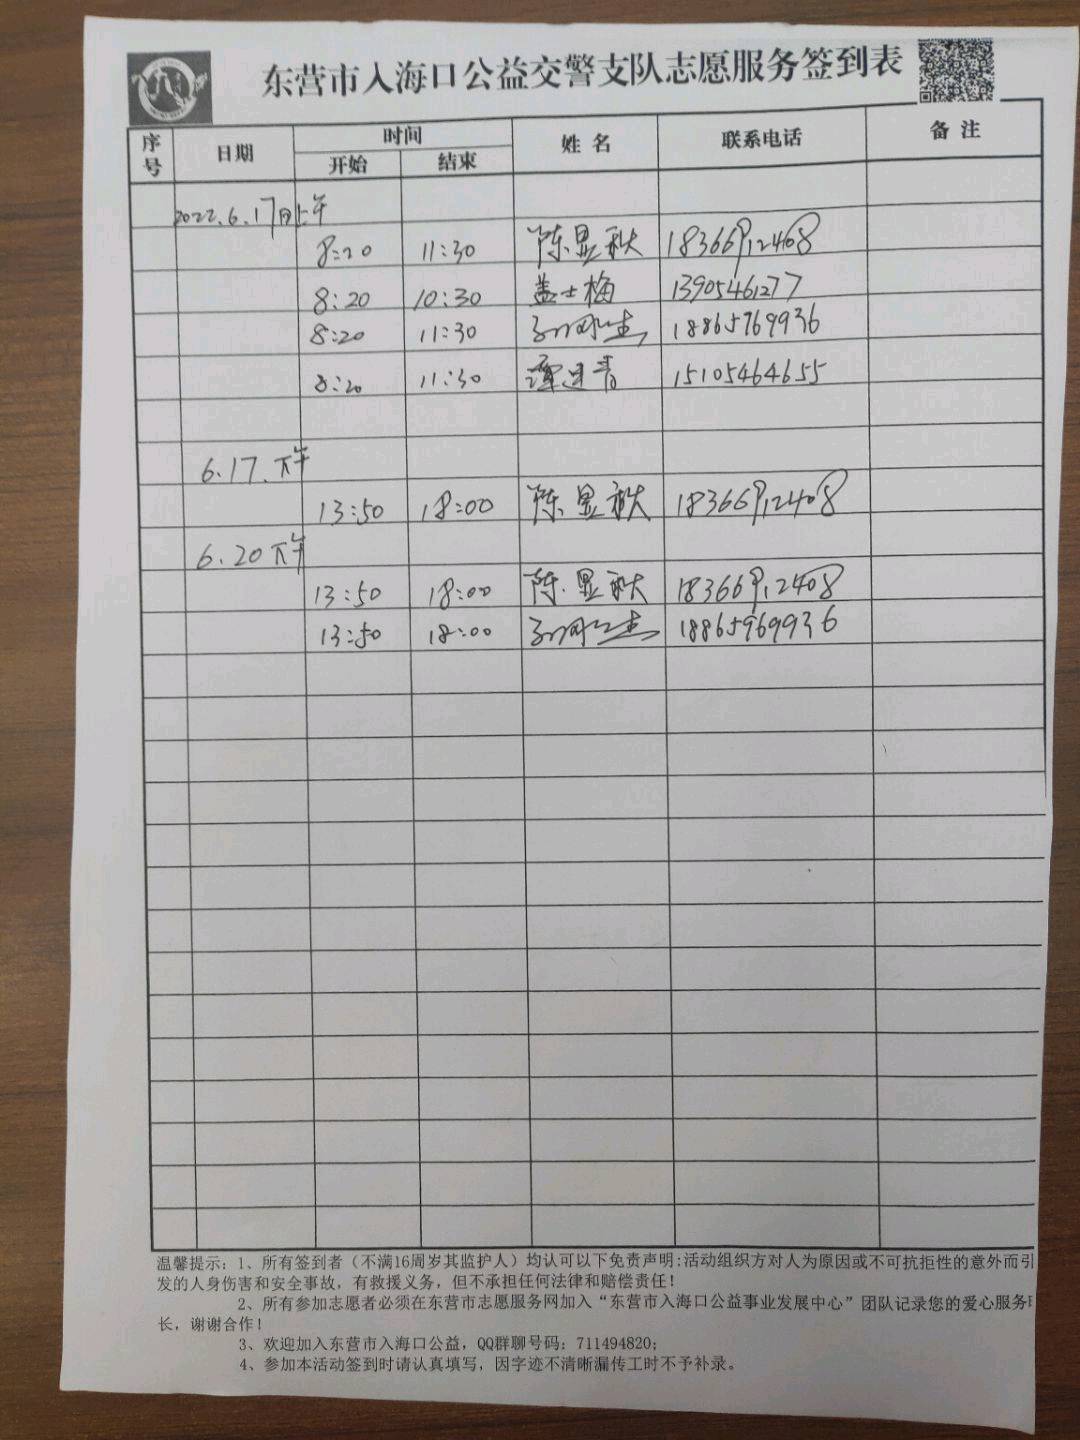 东营市入海口公益交警支队志愿服务签到表
序号 日期 时间 姓名 联系电话 备注
开始 结束
2022.6.17日上午
8:20 11:30 陈显秋 18366912408
8:20 10:30 盖士梅 13905461277
8:20 11:30 18865769936
8:20 11:30 15105464655
6.17.下午
13:50 18:00 陈显秋 18366912408
6.20下午
13:50 18:00 陈显秋 18366912408
13:50 18:00 18865969936
温馨提示：1、所有签到者（不满16周岁其监护人）均认可以下免责声明:活动组织方对人为原因或不可抗拒性的意外而引
发的人身伤害和安全事故，有救援义务，但不承担任何法律和赔偿责任！
2、所有参加志愿者必须在东营市志愿服务网加入“东营市入海口公益事业发展中心”团队记录您的爱心服务
长，谢谢合作！
3、欢迎加入东营市入海口公益，QQ群聊号码：711494820；
4、参加本活动签到时请认真填写，因字迹不清晰漏传工时不予补录。